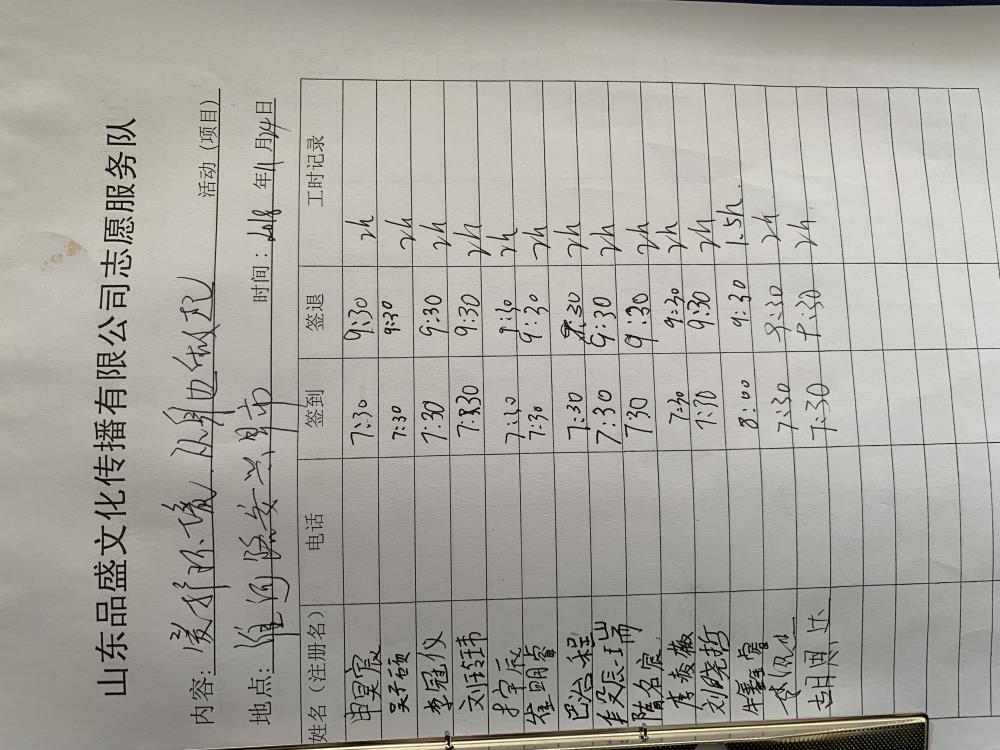 山东品盛文化传播有限公司志愿服务队
内容：爱护环境 从身边做起 活动（项目）
地点：潍河 时间：2018年11月24日
姓名（注册名） 电话 签到 签退 工时记录
申昊宸 7:30 9:30 2h
吴子硕 7:30 9:30 2h
李冠仪 7:30 9:30 2h
刘钰玮 7:30 9:30 2h
宇辰 7:30 9:30 2h
崔明睿 7:30 9:30 2h
巴治程 7:30 9:30 2h
7:30 9:30 2h
隋名宸 7:30 9:30 2h
李凌薇 7:30 9:30 2h
刘晓哲 7:30 9:30 2h
牛鑫睿 8:00 9:30 1.5h.
7:30 9:30 2h
胡 7:30 9:30 2h.